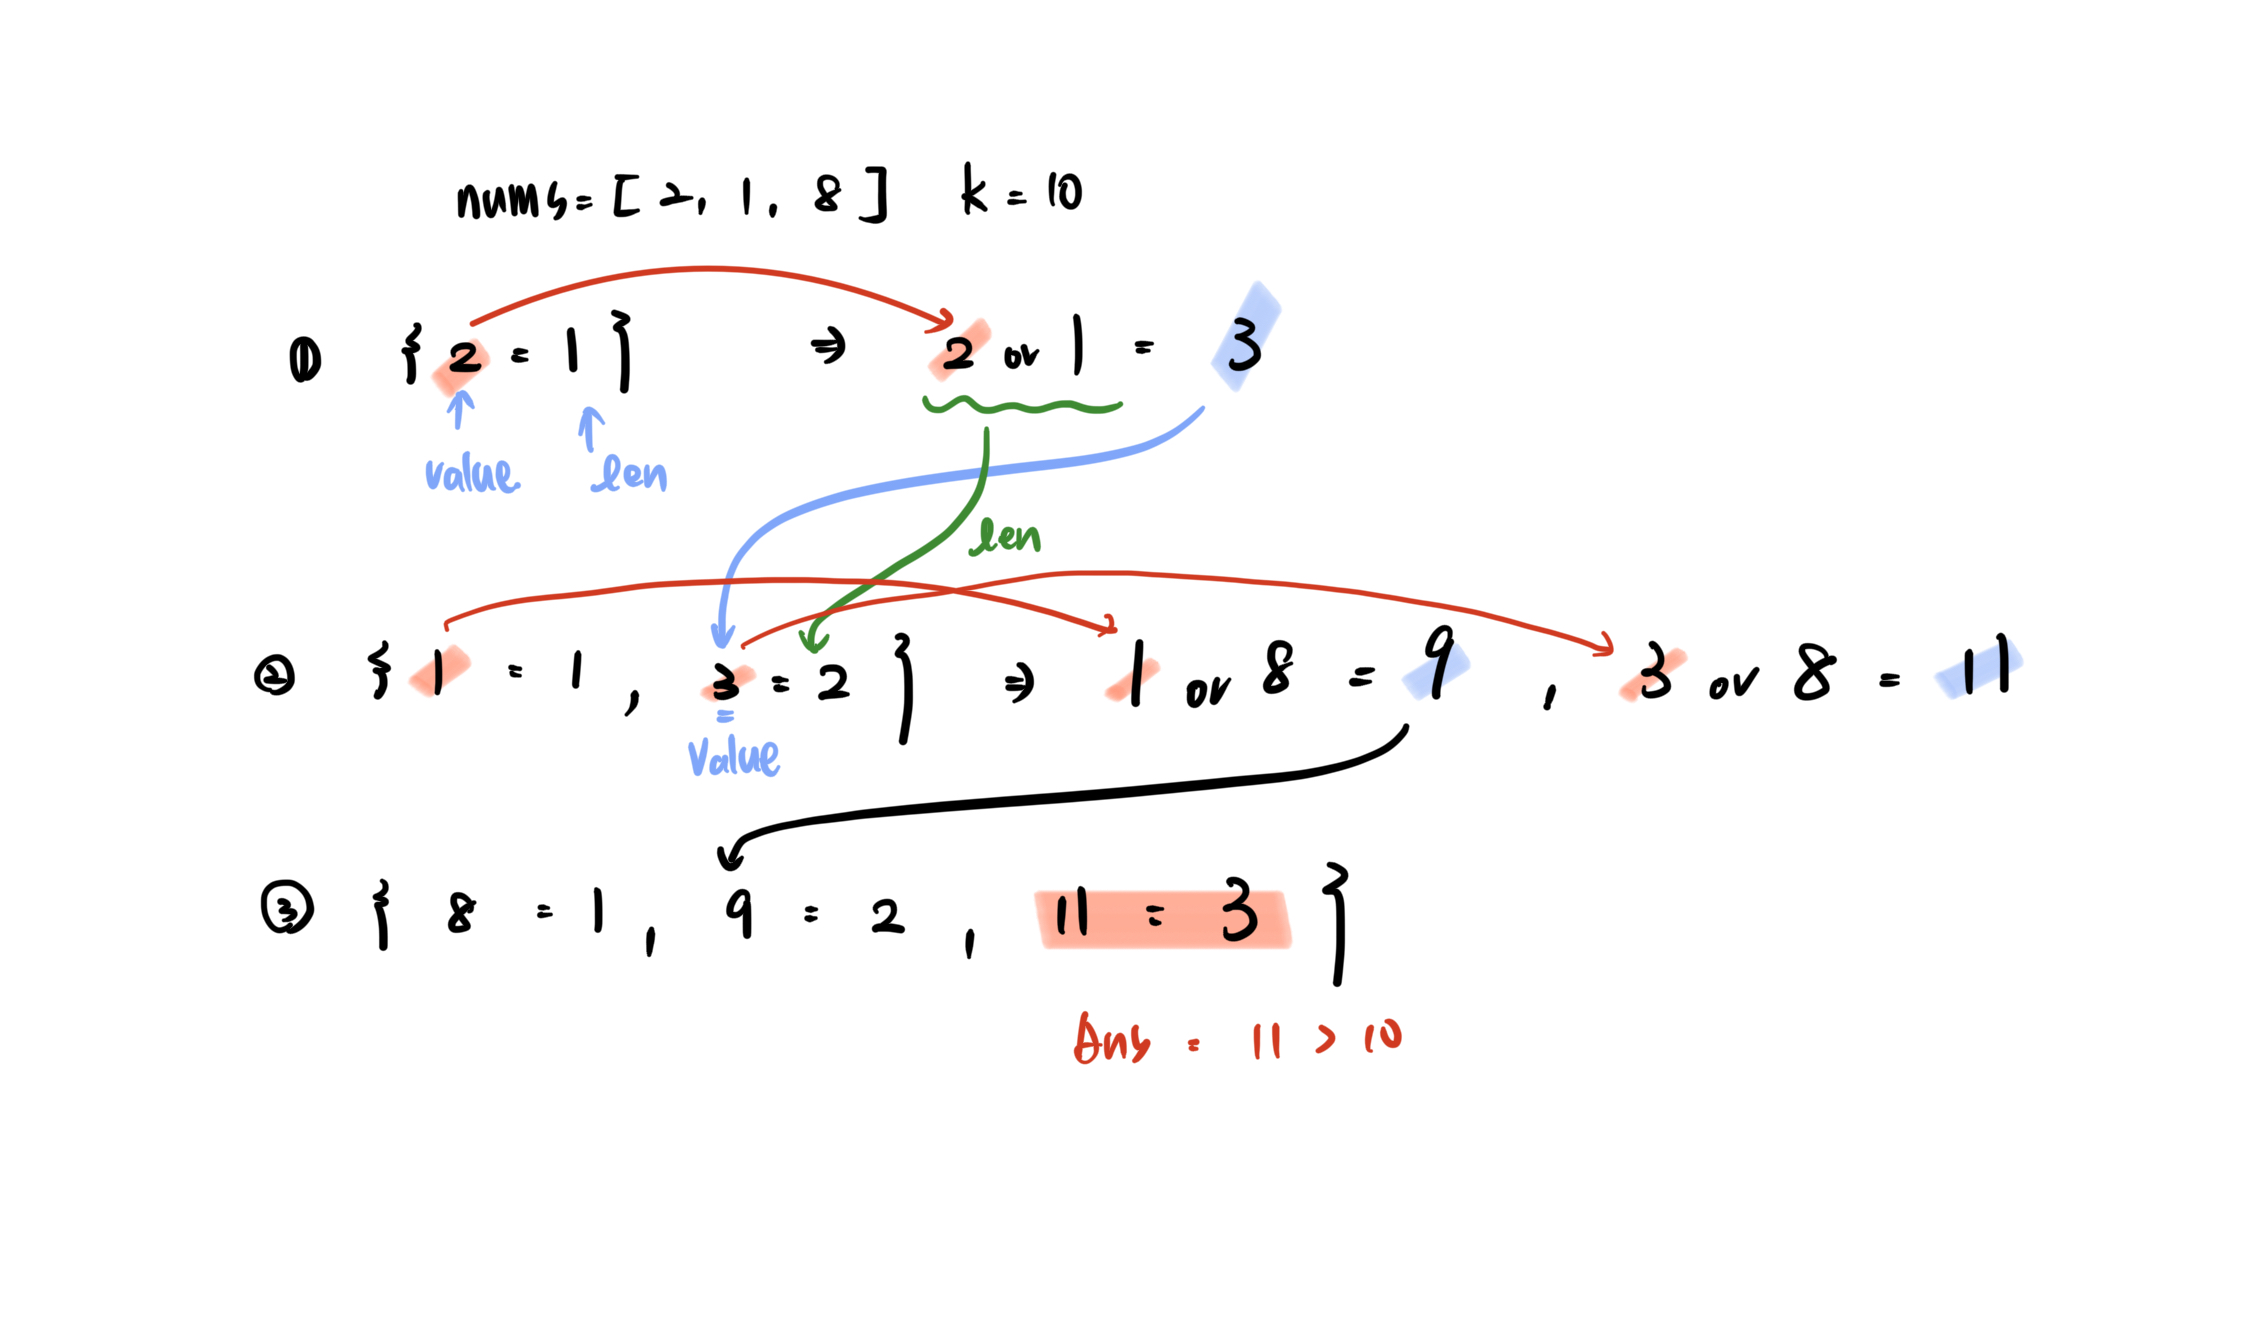 nums = [ 2, 1, 8 ] k = 10
① { 2 = 1 } ⇒ 2 or 1 = 3
value len
len
② { 1 = 1 , 3 = 2 } ⇒ 1 or 8 = 9 , 3 or 8 = 11
Value
③ { 8 = 1 , 9 = 2 , 11 = 3 }
Ans = 11 > 10